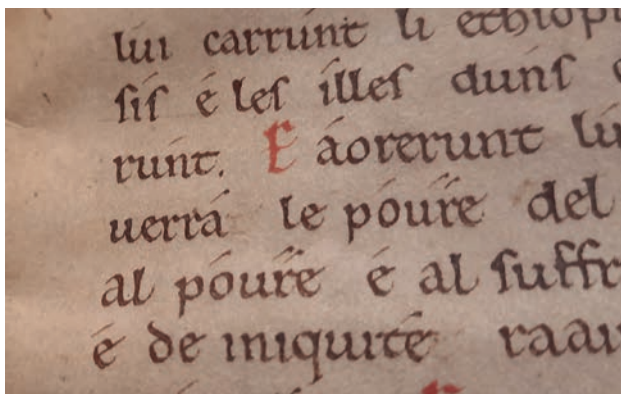 lui carrunt li ethiopi
sis é les illes duns
runt. E áorerunt lu
uerrá le póure del
al póure é al suffr
é de iniquité raau